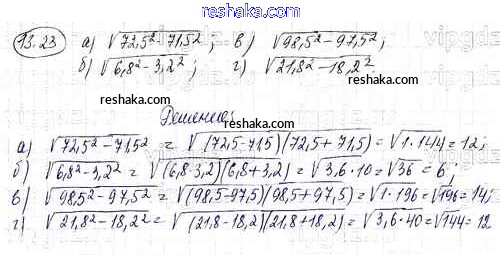 reshaka.com
13.23 а) √72,5² − 71,5² ; в) √98,5² − 97,5² ;
б) √6,8² − 3,2² ; г) √21,8² − 18,2²
reshaka.com reshaka.com
Решение
а) √72,5² − 71,5² = √(72,5 − 71,5)(72,5 + 71,5) = √1·144 = 12;
reshaka.com reshaka.com
б) √6,8² − 3,2² = √(6,8-3,2)(6,8+3,2) = √3,6·10 = √36 = 6;
в) √98,5² − 97,5² = √(98,5-97,5)(98,5+97,5) = √1·196 = √196 = 14;
г) √21,8² − 18,2² = √(21,8-18,2)(21,8+18,2) = √3,6·40 = √144 = 12
reshaka.com